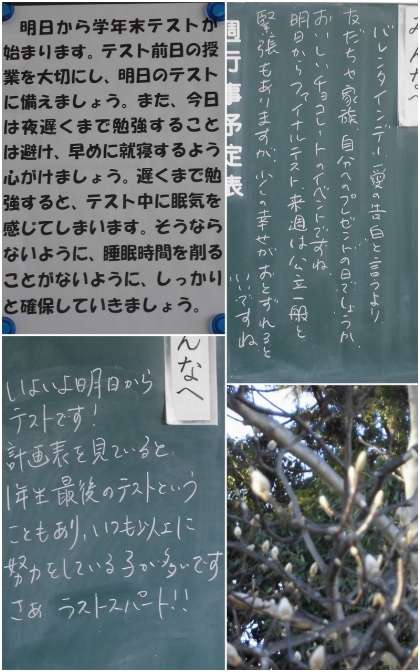 明日から学年末テストが
始まります。テスト前日の授
業を大切にし、明日のテスト
に備えましょう。また、今日
は夜遅くまで勉強すること
は避け、早めに就寝するよう
心がけましょう。遅くまで勉
強すると、テスト中に眠気を
感じてしまいます。そうなら
ないように、睡眠時間を削る
ことがないように、しっかり
と確保していきましょう。
みんなへ
バレンタインデー、愛の告白と言うより
友だちや家族、自分へのプレゼントの日でしょうか。
おいしいチョコレートのイベントですね
明日からファイナルテスト、来週は公立一般と
緊張もありますが、小さな幸せがおとずれると
いいですね
週行事予定表
んなへ
いよいよ明日から
テストです!
計画表を見ていると、
1年生最後のテストという
こともあり、いつも以上に
努力をしている子が多いです
さぁ ラストスパート!!